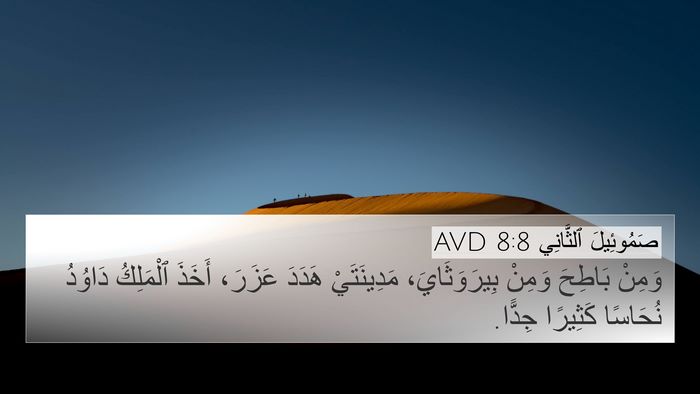 صَمُوئِيلَ ٱلثَّانِي 8:8 AVD
وَمِنْ بَاطِحَ وَمِنْ بِيرَوَثَايَ، مَدِينَتَيْ هَدَدَ عَزَرَ، أَخَذَ ٱلْمَلِكُ دَاوُدُ
نُحَاسًا كَثِيرًا جِدًّا.